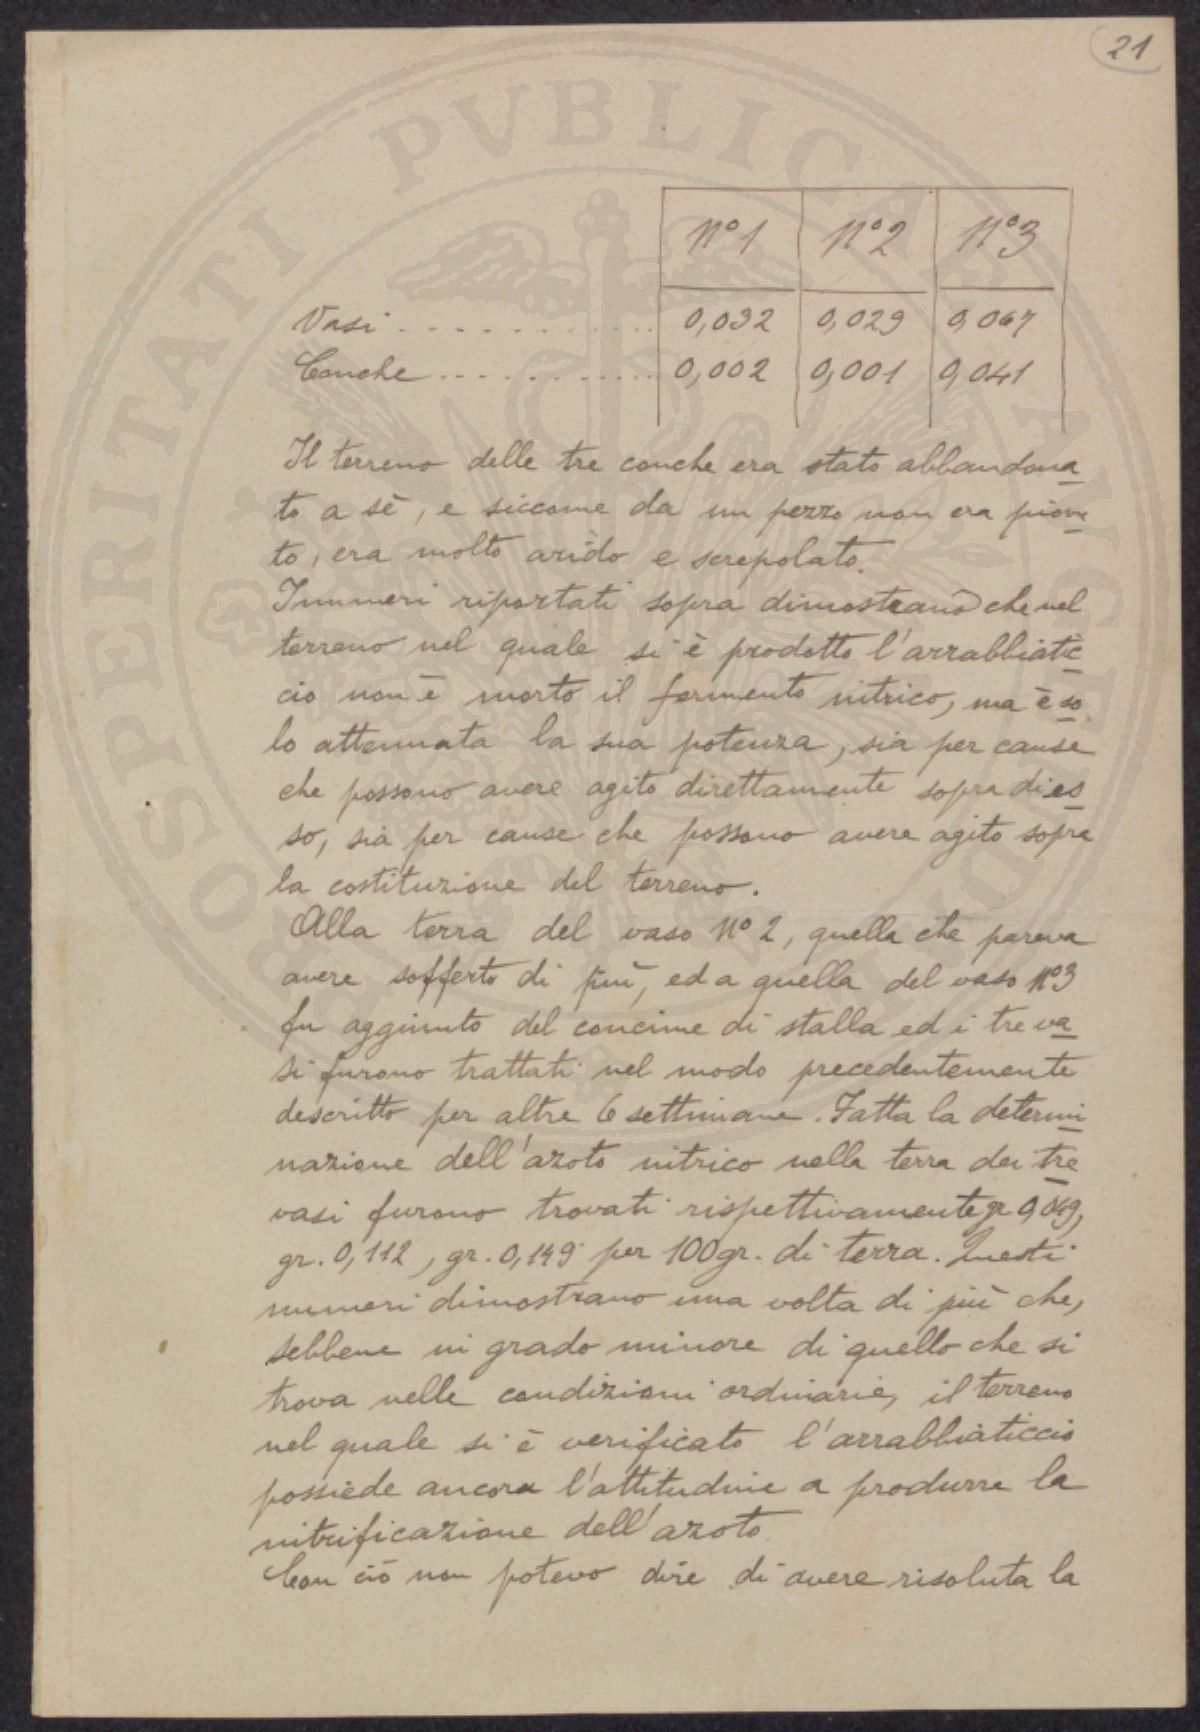 21
N°1 N°2 N°3
Vasi . . . . . . . . . . . 0,032 0,029 0,067
Conche . . . . . . . . . . . 0,002 0,001 0,041
Il terreno delle tre conche era stato abbandona
to a sè, e siccome da un pezzo non era piovu
to, era molto arido e screpolato.
I numeri riportati sopra dimostrano che nel
terreno nel quale si è prodotto l'arrabbiatic
cio non è morto il fermento nitrico, ma è so
lo attenuata la sua potenza, sia per cause
che possono avere agito direttamente sopra di es
so, sia per cause che possono avere agito sopra
la costituzione del terreno.
Alla terra del vaso N° 2, quella che pareva
avere sofferto di più, ed a quella del vaso N°3
fu aggiunto del concime di stalla ed i tre va
si furono trattati nel modo precedentemente
descritto per altre 6 settimane. Fatta la determi
nazione dell'azoto nitrico nella terra dei tre
vasi furono trovati rispettivamente gr 0,049,
gr. 0,112, gr. 0,149 per 100 gr. di terra. Questi
numeri dimostrano una volta di più che,
sebbene in grado minore di quello che si
trova nelle condizioni ordinarie, il terreno
nel quale si è verificato l'arrabbiaticcio
possiede ancora l'attitudine a produrre la
nitrificazione dell'azoto.
Con ciò non potevo dire di avere risoluta la
PROSPERITATI PVBLICAE AVGENDAE